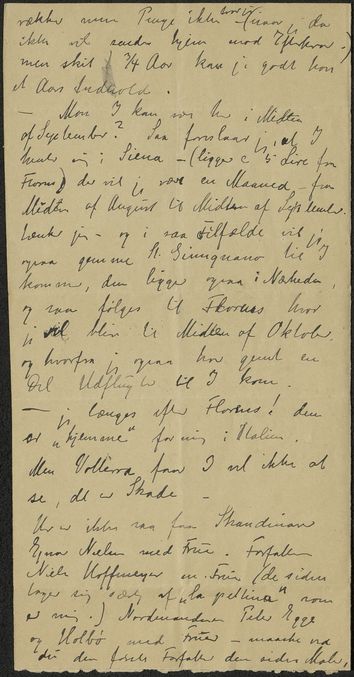 rækker mine Penge ikke (naar jeg da
ikke vil sendes hjem med Efterkrav.)
men skit i ¾ Aar kan jeg godt ha
et Aars Indhold.
— Mon I kan være her i Midten
af September? Saa foreslaar jeg, at I
henter mig i Siena — (ligger c 5 Lire fra
Florens) der vil jeg være en Maaned, fra
Midten af August til Midten af September.
tænker jeg — og i saa tilfælde vil jeg
ogsaa gemme St. Gimignano til I
komme, den ligger ogsaa i Nærheden,
og saa følges til Florens hvor
jeg vil blive til Midten af Oktober.
og hvorfra jeg ogsaa har gemt en
Del Udflugter til I kom.
— jeg længes efter Florens! den
er "hjemme" for mig i Italien.
Men Volterra faar I vel ikke at
se, det er Skade —
Her er ikke saa faa Skandinaver
Ejnar Nielsen med Frue. Forfatter
Niels Hoffmeyer en Frue (de siden
tager sig af "la pittrice" som
er mig.) Nordmændene Peter Egge
og Holbø med Fruer — maaske ved
du den første Forfatter den sidste Maler,